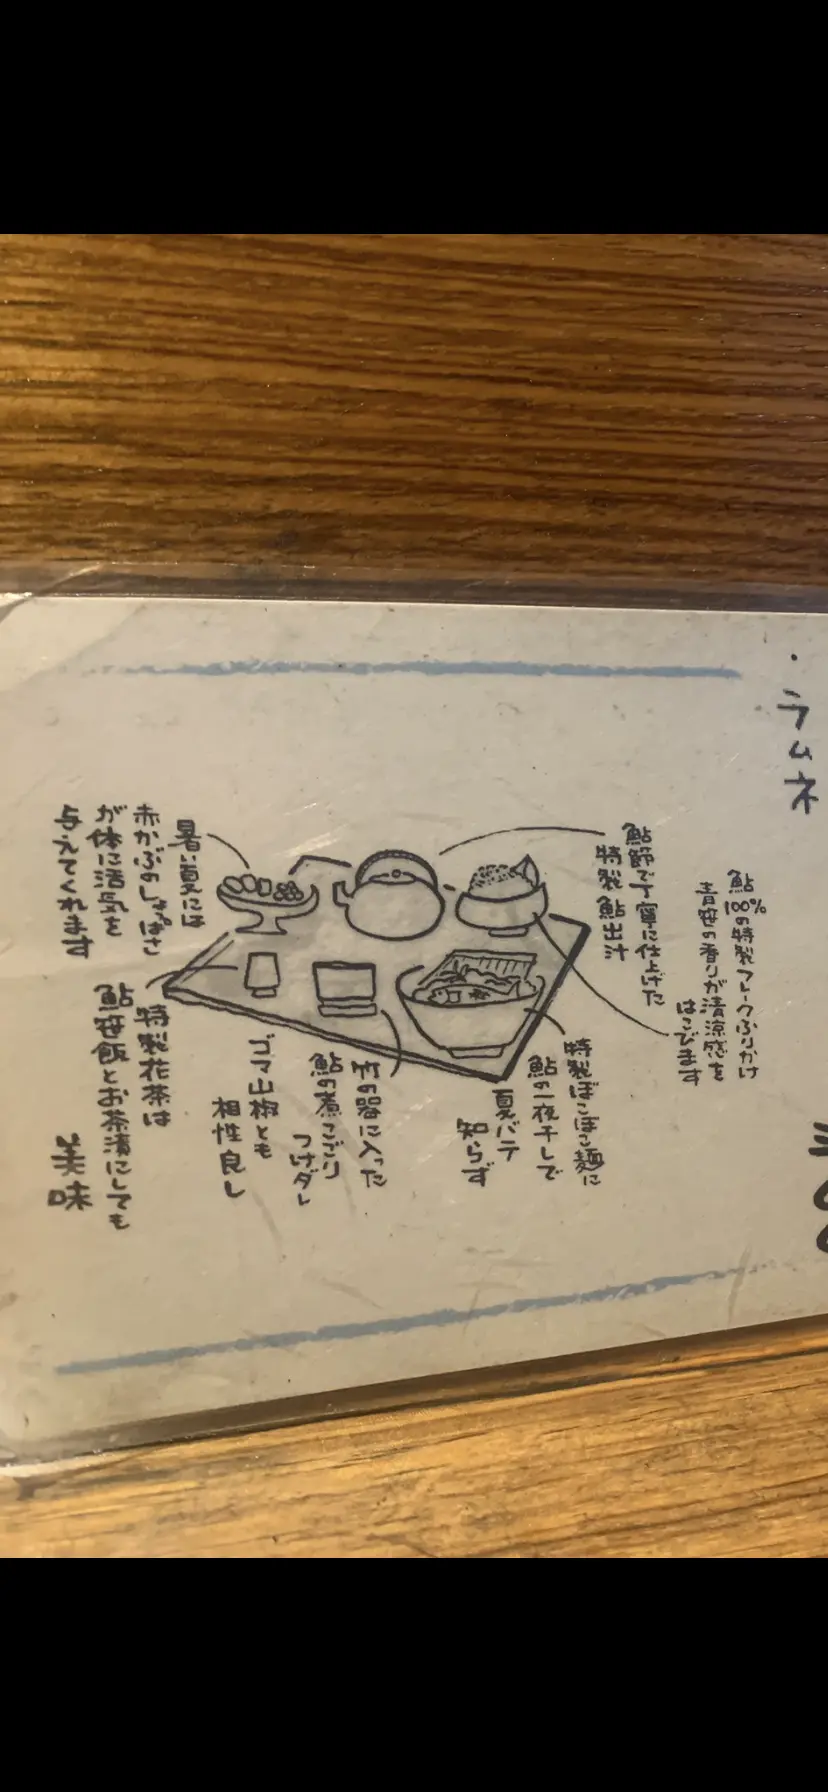 ・ラムネ
鮎100%の特製フレークふりかけ
青笹の香りが清涼感を
はこびます
鮎節で丁寧に仕上げた
特製鮎出汁
特製ぼこぼこ麺に
鮎の一夜干しで
夏バテ
知らず
竹の器に入った
鮎の煮こごり
つけダレ
ゴマ山椒とも
相性良し
暑い夏には
赤かぶのしょっぱさ
が体に活気を
与えてくれます
特製花茶は
鮎笹飯とお茶漬にしても
美味